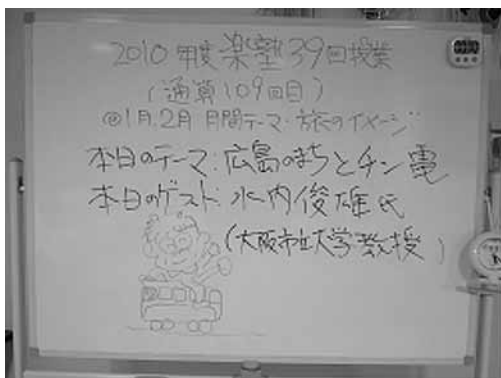 2010年度楽塾39回授業
(通算109回目)
◎1月,2月 月間テーマ・旅のイメージ
本日のテーマ:広島のまちとチン電
本日のゲスト:水内俊雄氏
(大阪市立大学教授)